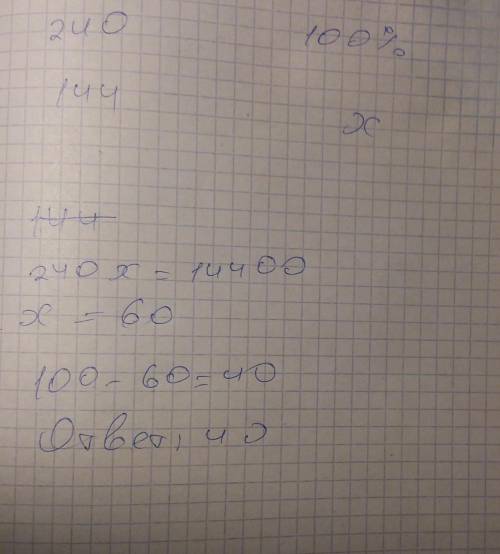 240 100%
144 x
144
240x = 14400
x = 60
100 - 60 = 40
Ответ: 40